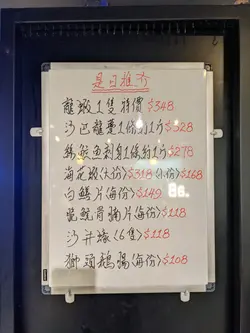 是日推介
龍蝦1隻特價$348
沙巴龍躉1份 $328
魚刺身1條 $278
海花蝦(大份)$318(小份)$168
白鱔片(每份)$149 86.
骨腩片(每份)$118
沙井蠔(6隻)$118
獅頭鵝腸(每份)$108